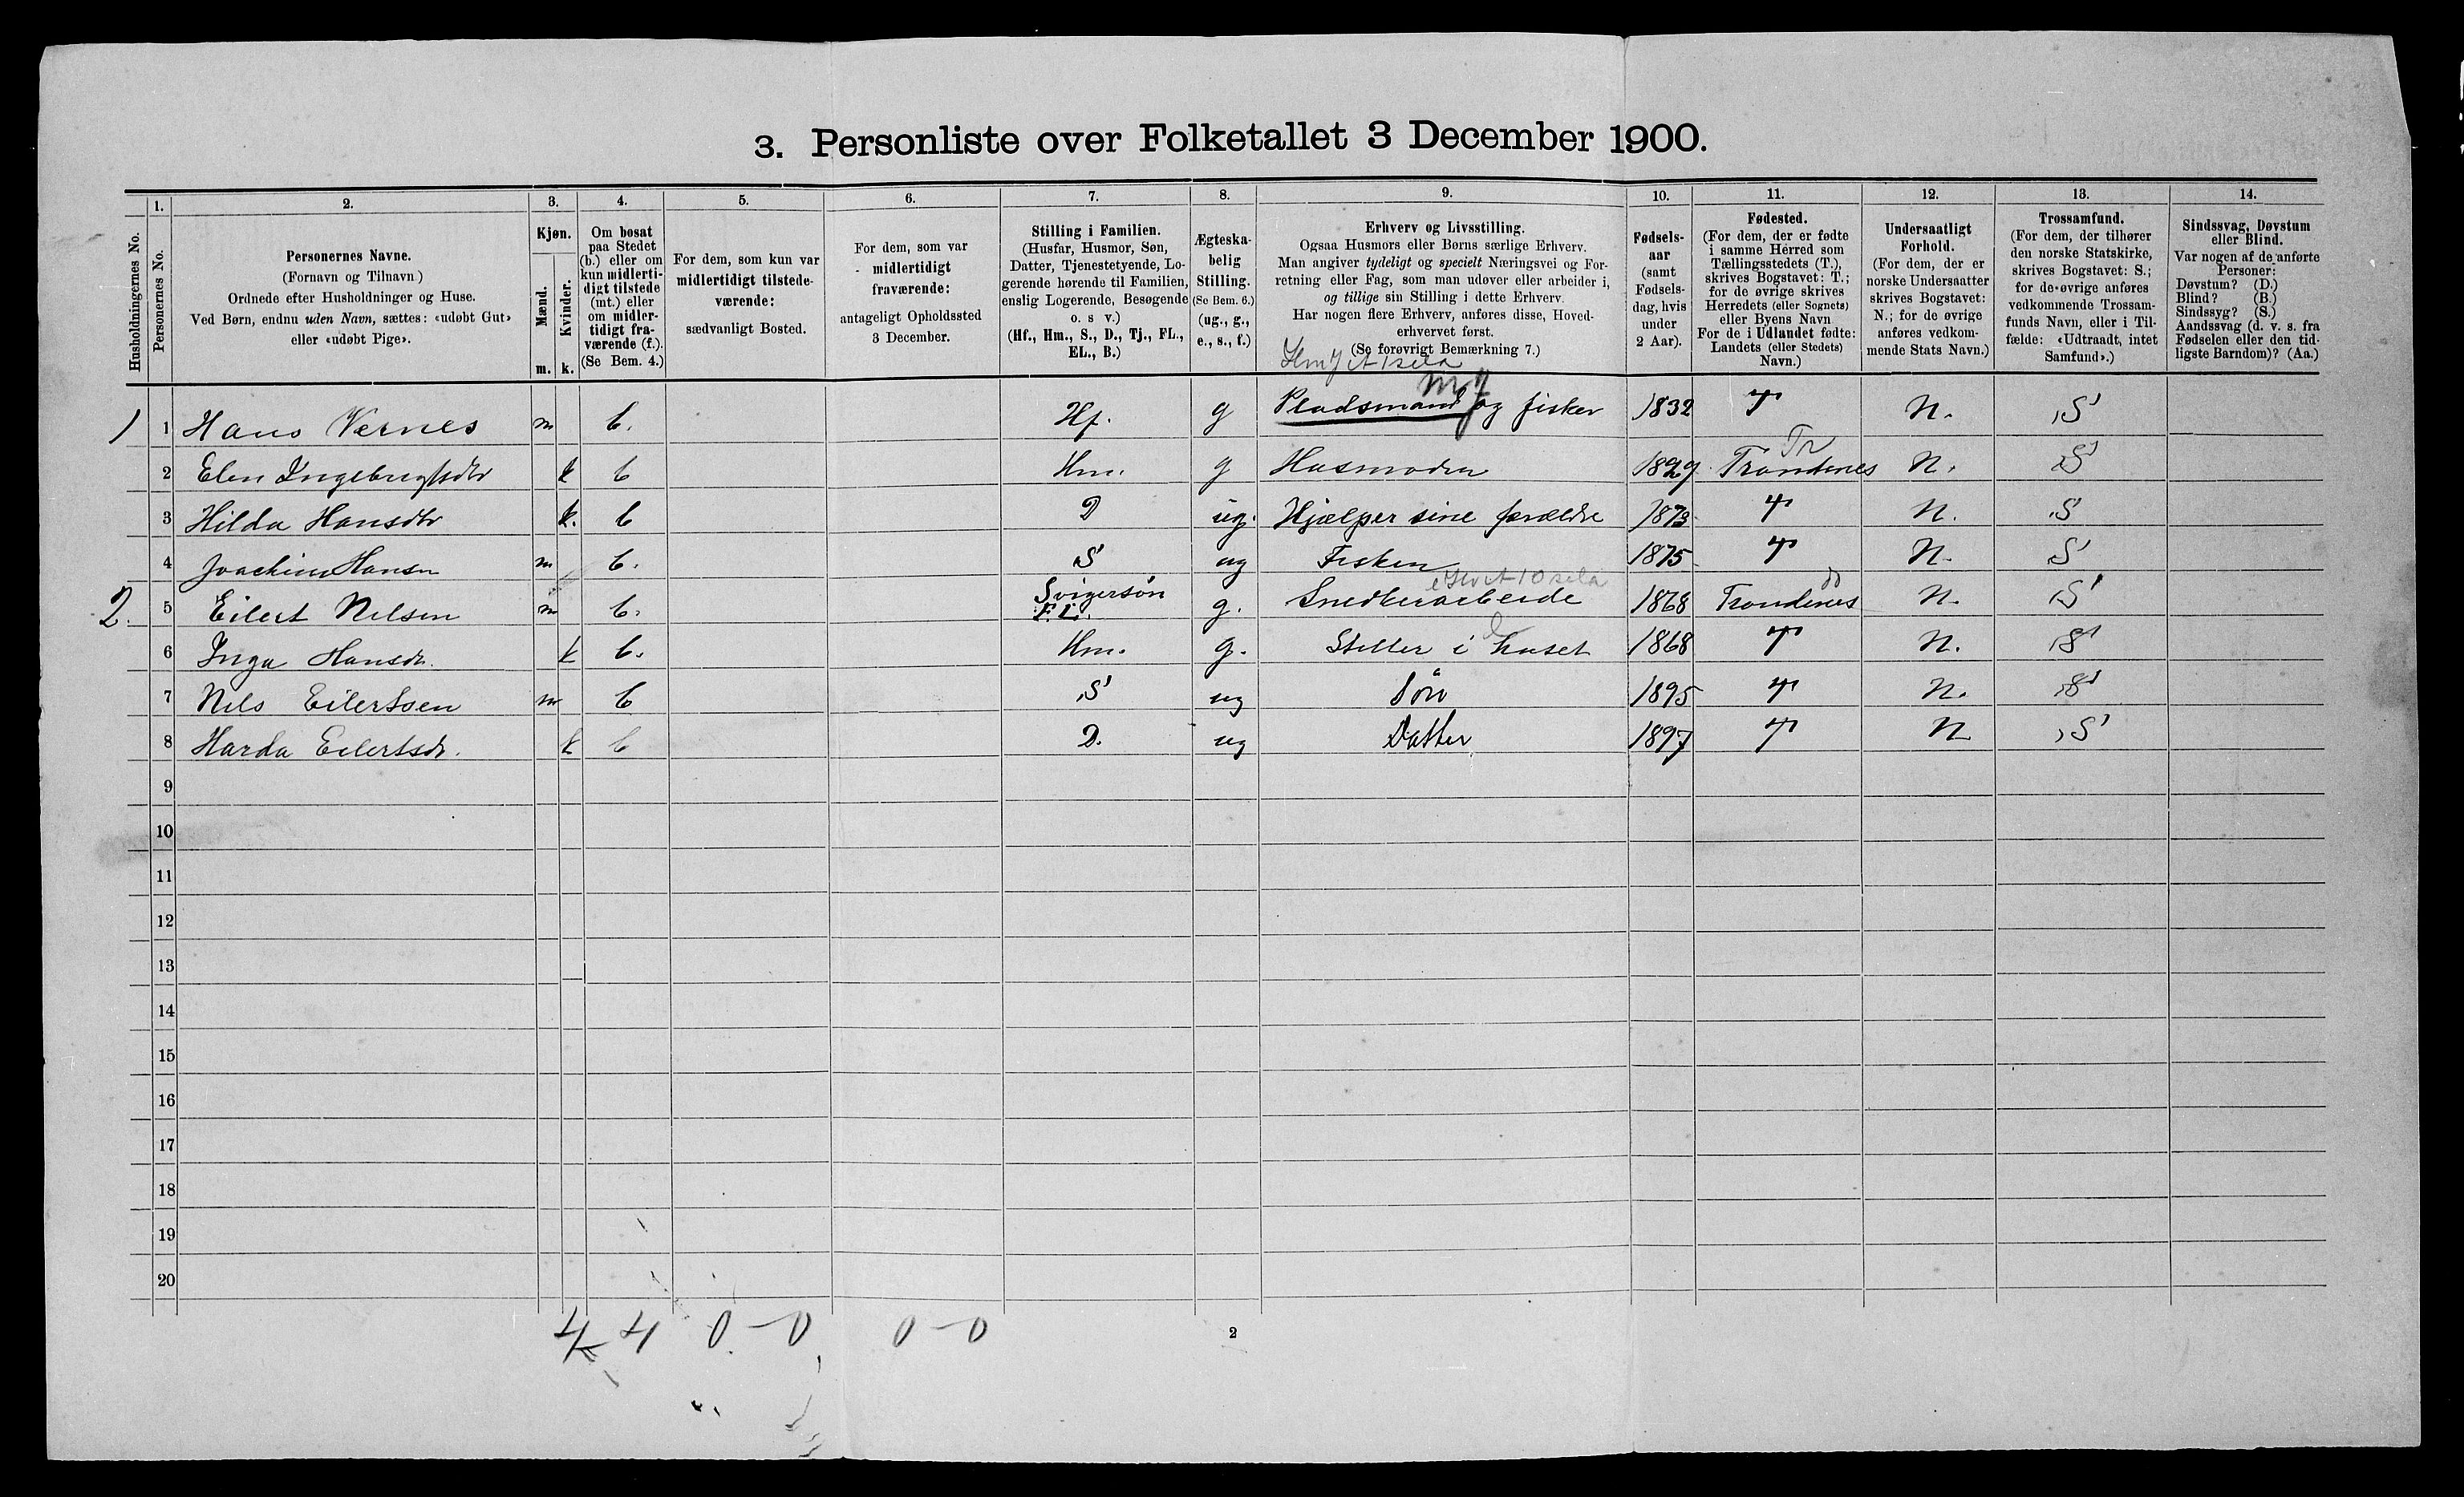 3. Personliste over Folketallet 3 December 1900.
Husholdningernes No.
1. Personernes No.
2. Personernes Navne.
(Fornavn og Tilnavn)
Ordnede efter Husholdninger og Huse.
Ved Børn, endnu uden Navn, sættes: «udøbt Gut»
eller «udøbt Pige».
3. Kjøn.
Mænd. m.
Kvinder. k.
4. Om bosat
paa Stedet
(b.) eller om
kun midlerti-
digt tilstede
(mt.) eller
om midler-
tidigt fra-
værende (f.).
(Se Bem. 4.)
5. For dem, som kun var
midlertidigt tilstede-
værende:
sædvanligt Bosted.
6. For dem, som var
midlertidigt
fraværende:
antageligt Opholdssted
3 December.
7. Stilling i Familien.
(Husfar, Husmor, Søn,
Datter, Tjenestetyende, Lo-
gerende hørende til Familien,
enslig Logerende, Besøgende
o. s v.)
(Hf., Hm., S., D., Tj., FL.,
EL., B.)
8. Ægteska-
belig
Stilling.
(Se Bem. 6.)
(ug., g.,
e., s., f.)
9. Erhverv og Livsstilling.
Ogsaa Husmors eller Børns særlige Erhverv.
Man angiver tydeligt og specielt Næringsvei og For-
retning eller Fag, som man udøver eller arbeider i,
og tillige sin Stilling i dette Erhverv.
Har nogen flere Erhverv, anføres disse, Hoved-
erhvervet først.
(Se forøvrigt Bemærkning 7.)
10. Fødsels-
aar
(samt
Fødsels-
dag, hvis
under
2 Aar).
11. Fødested.
(For dem, der er fødte
i samme Herred som
Tællingsstedets (T.),
skrives Bogstavet: T.;
for de øvrige skrives
Herredets (eller Sognets)
eller Byens Navn
For de i Udlandet fødte:
Landets (eller Stedets)
Navn.)
12. Undersaatligt
Forhold.
(For dem, der er
norske Undersaatter
skrives Bogstavet:
N.; for de øvrige
anføres vedkom-
mende Stats Navn.)
13. Trossamfund.
(For dem, der tilhører
den norske Statskirke,
skrives Bogstavet: S.;
for de øvrige anføres
vedkommende Trossam-
funds Navn, eller i Til-
fælde: «Udtraadt, intet
Samfund».)
14. Sindssvag, Døvstum
eller Blind.
Var nogen af de anførte
Personer:
Døvstum? (D.)
Blind? (B.)
Sindssyg? (S.)
Aandssvag (d. v. s. fra
Fødselen eller den tid-
ligste Barndom)? (Aa.)
1 1 Hans Vernes m b. Hf. g Pladsmand og fisker 1832 T N. S
2 Elen Ingebrigtsdtr k b Hm. g Husmoder 1829 Trondenes Tr N. S
3 Hilda Hansdtr k. b D ug. Hjælper sine forældre 1873 T N. S
4 Joachim Hansen m b. S ug Fisker 1875 T N. S
2. 5 Eilert Nilsen m b. Svigersøn F.L. g. Snedkerarbeide 1868 Trondenes do N. S
6 Inga Hansdr. k b. Hm. g. Steller i huset 1868 T N. S
7 Nils Eilertsen m b S ug Søn 1895 T N. S
8 Harda Eilertsdr. k b D. ug Datter 1897 T N S
9
10
11
12
13
14
15
16
17
18
19
20
4 4 0-0 0-0
2